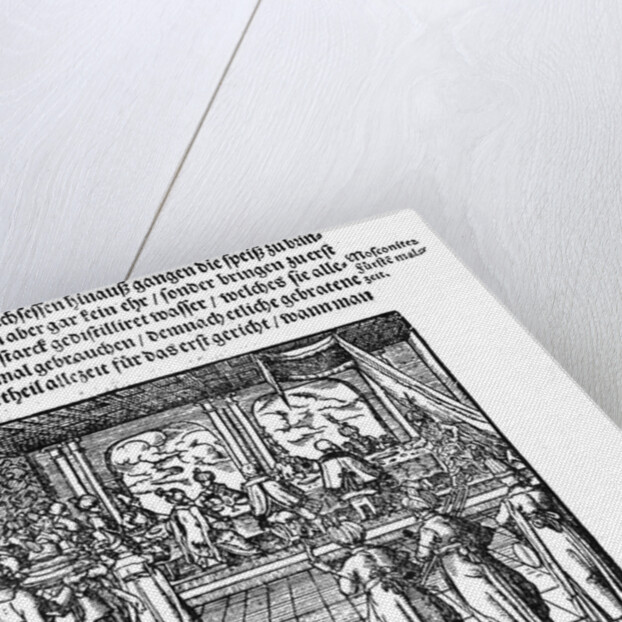 chsessen hinauß gangen die speiß zu brin-
aber gar kein ehr / sonder bringen zu erst
starck gedistilliret wasser / welches sie alle-
mal gebrauchen / demnach etliche gebratene
theil allezeit für das erst gericht / wann man
Mosconites
Fürstẽ mal-
zeit.